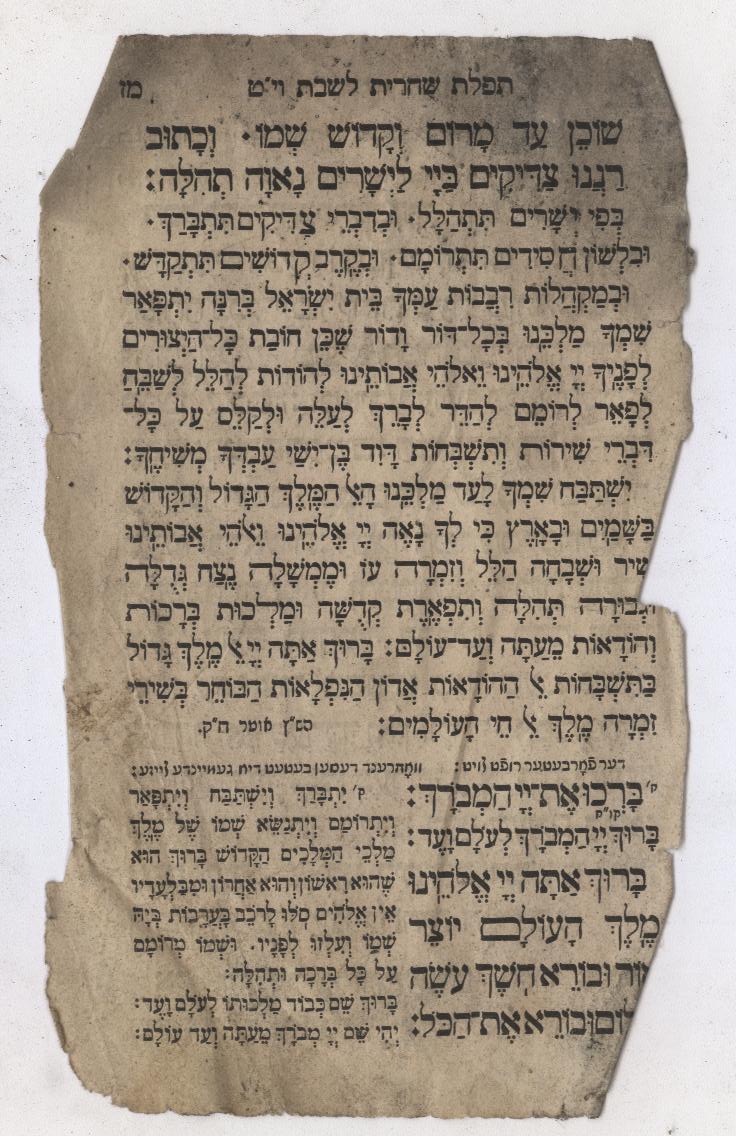 תפלת שחרית לשבת וי״ט מז
שׁוֹכֵן עַד מָרוֹם וְקָדוֹשׁ שְׁמוֹ· וְכָתוּב
רַנְּנוּ צַדִּיקִים בַּיְיָ לַיְשָׁרִים נָאוָה תְהִלָּה:
בְּפִי יְשָׁרִים תִּתְהַלָּל· וּבְדִבְרֵי צַדִּיקִים תִּתְבָּרַךְ·
וּבִלְשׁוֹן חֲסִידִים תִּתְרוֹמָם· וּבְקֶרֶב קְדוֹשִׁים תִּתְקַדָּשׁ·
וּבְמַקְהֲלוֹת רִבְבוֹת עַמְּךָ בֵּית יִשְׂרָאֵל בְּרִנָּה יִתְפָּאַר
שִׁמְךָ מַלְכֵּנוּ בְּכָל־דּוֹר וָדוֹר שֶׁכֵּן חוֹבַת כָּל־הַיְצוּרִים
לְפָנֶיךָ יְיָ אֱלֹהֵינוּ וֵאלֹהֵי אֲבוֹתֵינוּ לְהוֹדוֹת לְהַלֵּל לְשַׁבֵּחַ
לְפָאֵר לְרוֹמֵם לְהַדֵּר לְבָרֵךְ לְעַלֵּה וּלְקַלֵּס עַל כָּל־
דִּבְרֵי שִׁירוֹת וְתִשְׁבְּחוֹת דָּוִד בֶּן־יִשַׁי עַבְדְּךָ מְשִׁיחֶךָ:
יִשְׁתַּבַּח שִׁמְךָ לָעַד מַלְכֵּנוּ הָאֵל הַמֶּלֶךְ הַגָּדוֹל וְהַקָּדוֹשׁ
בַּשָּׁמַיִם וּבָאָרֶץ כִּי לְךָ נָאֶה יְיָ אֱלֹהֵינוּ וֵאלֹהֵי אֲבוֹתֵינוּ
שִׁיר וּשְׁבָחָה הַלֵּל וְזִמְרָה עוֹז וּמֶמְשָׁלָה נֶצַח גְּדֻלָּה
וּגְבוּרָה תְּהִלָּה וְתִפְאֶרֶת קְדֻשָּׁה וּמַלְכוּת בְּרָכוֹת
וְהוֹדָאוֹת מֵעַתָּה וְעַד־עוֹלָם: בָּרוּךְ אַתָּה יְיָ אֵל מֶלֶךְ גָּדוֹל
בַּתִּשְׁבָּחוֹת אֵל הַהוֹדָאוֹת אֲדוֹן הַנִּפְלָאוֹת הַבּוֹחֵר בְּשִׁירֵי
זִמְרָה מֶלֶךְ אֵל חֵי הָעוֹלָמִים: הש״ץ אומר ח״ק.
דער פֿאָרבעטער רופֿט לויט:
ק׳ בָּרְכוּ אֶת־יְיָ הַמְבֹרָךְ:
קו״ח
בָּרוּךְ יְיָ הַמְבֹרָךְ לְעוֹלָם וָעֶד:
בָּרוּךְ אַתָּה יְיָ אֱלֹהֵינוּ
מֶלֶךְ הָעוֹלָם יוֹצֵר
אוֹר וּבוֹרֵא חֹשֶׁךְ עֹשֶׂה
שָׁלוֹם וּבוֹרֵא אֶת־הַכֹּל:
וואָהרענד דעססן בעטעט דיא געמיינדע לייזע:
ק׳ יִתְבָּרַךְ וְיִשְׁתַּבַּח וְיִתְפָּאַר
וְיִתְרוֹמַם וְיִתְנַשֵּׂא שְׁמוֹ שֶׁל מֶלֶךְ
מַלְכֵי הַמְּלָכִים הַקָּדוֹשׁ בָּרוּךְ הוּא
שֶׁהוּא רִאשׁוֹן וְהוּא אַחֲרוֹן וּמִבַּלְעָדָיו
אֵין אֱלֹהִים סֹלּוּ לָרֹכֵב בָּעֲרָבוֹת בְּיָהּ
שְׁמוֹ וְעִלְזוּ לְפָנָיו. וּשְׁמוֹ מְרוֹמָם
עַל כָּל בְּרָכָה וּתְהִלָּה:
בָּרוּךְ שֵׁם כְּבוֹד מַלְכוּתוֹ לְעוֹלָם וָעֶד:
יְהִי שֵׁם יְיָ מְבֹרָךְ מֵעַתָּה וְעַד עוֹלָם: